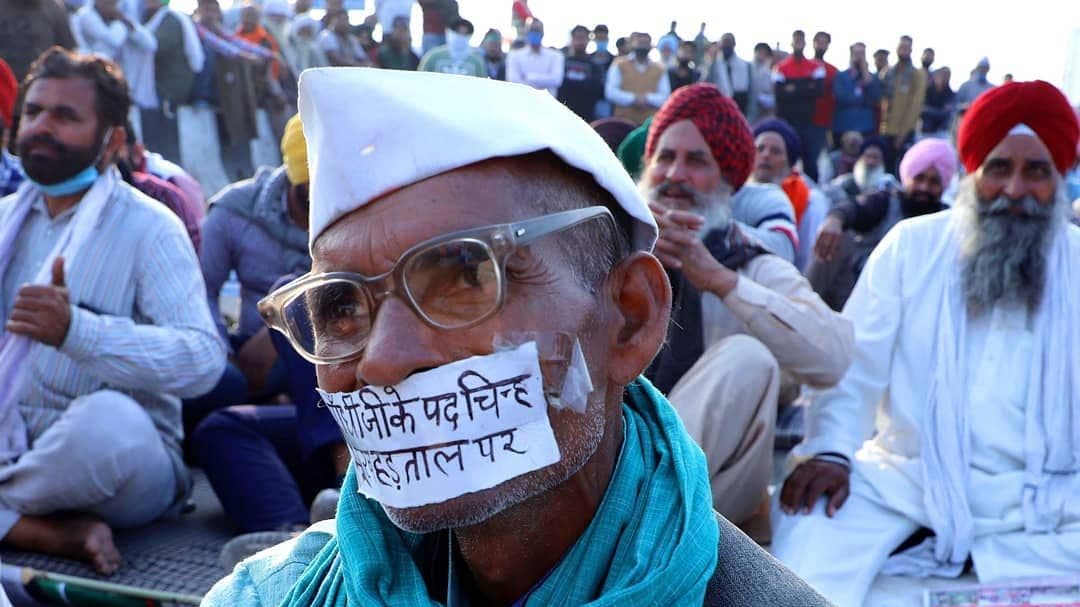 गाँधीजी के पद चिन्ह
हड़ताल पर